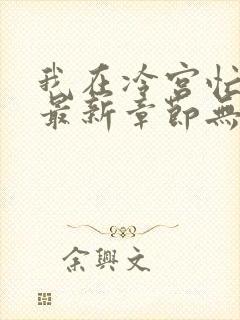 我在冷宮忙
最新章節無
余興文